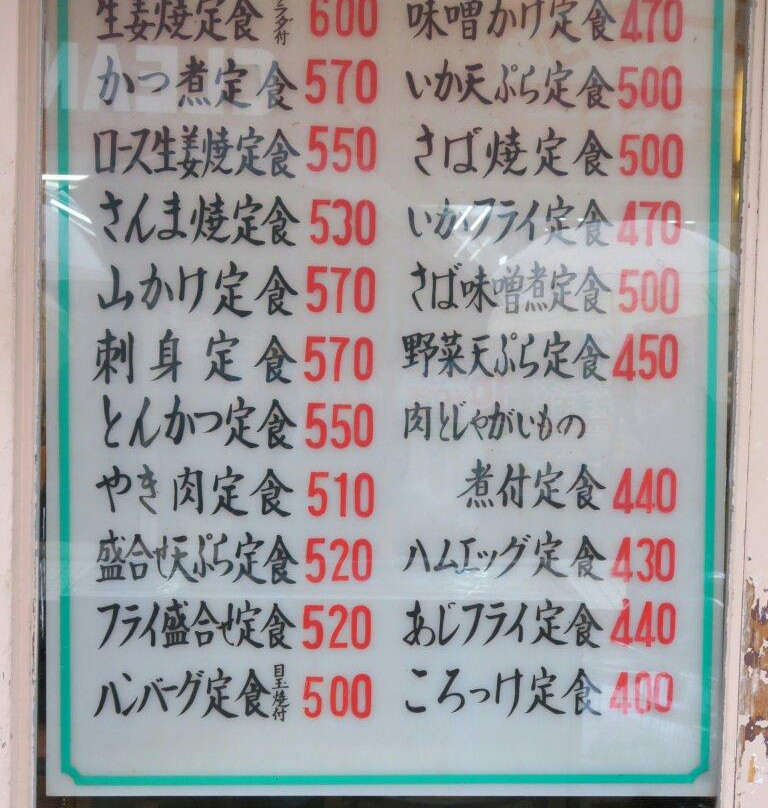 生姜焼定食 600
かつ煮定食 570
ロース生姜焼定食 550
さんま焼定食 530
山かけ定食 570
刺身定食 570
とんかつ定食 550
やき肉定食 510
盛合せ天ぷら定食 520
フライ盛合せ定食 520
ハンバーグ定食 目玉焼付 500
味噌かけ定食 470
いか天ぷら定食 500
さば焼定食 500
いかフライ定食 470
さば味噌煮定食 500
野菜天ぷら定食 450
肉とじゃがいもの
煮付定食 440
ハムエッグ定食 430
あじフライ定食 440
ころっけ定食 400
CLEAN